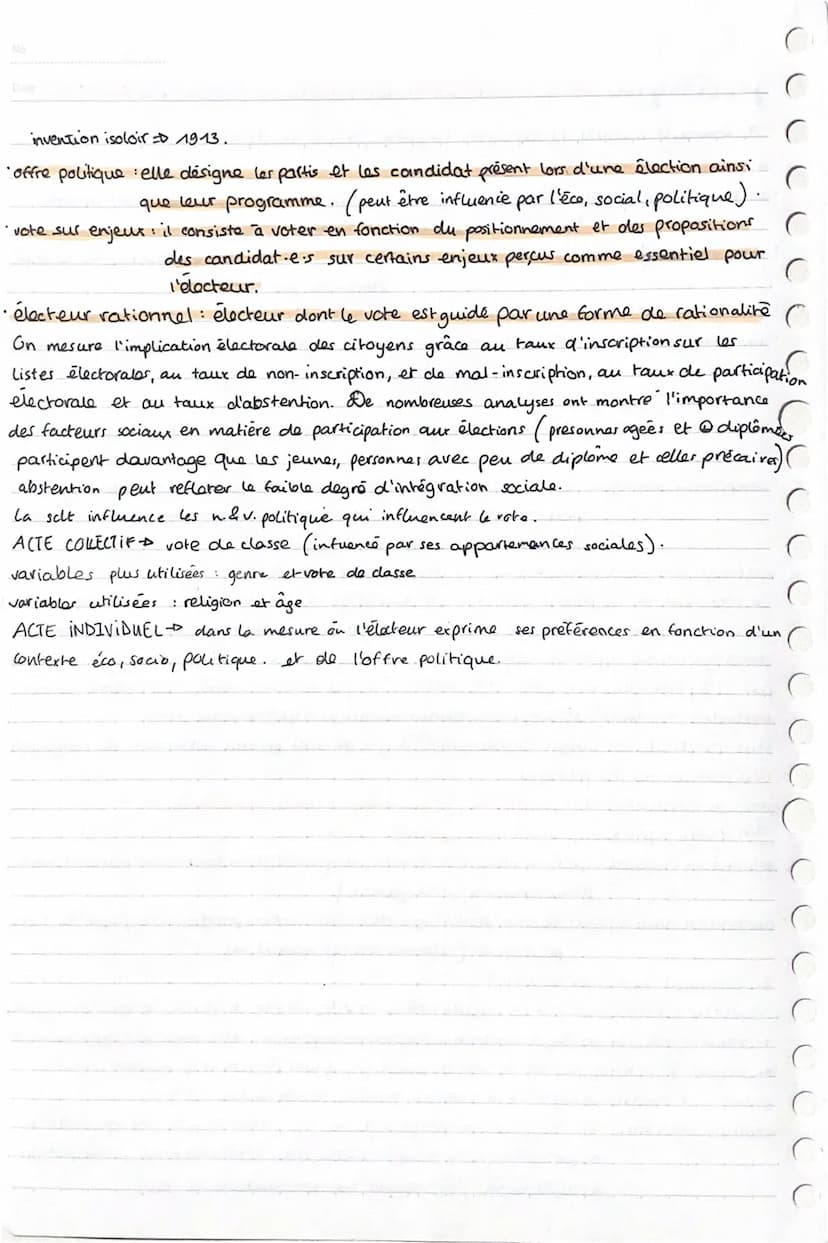 No
Date
invention isoloir => 1913.
• offre politique : elle désigne les partis et les candidat présent lors d'une élection ainsi
que leur programme. (peut être influencé par l'éco, social, politique).
• vote sur enjeux : il consiste à voter en fonction du positionnement et des propositions
des candidat·e·s sur certains enjeux perçus comme essentiel pour
l'électeur.
• électeur rationnel : électeur dont le vote est guidé par une forme de rationalité
On mesure l'implication électorale des citoyens grâce au taux d'inscription sur les
listes électorales, au taux de non-inscription, et de mal-inscription, au taux de participation
électorale et au taux d'abstention. De nombreuses analyses ont montré l'importance
des facteurs sociaux en matière de participation aux élections (presonnes agées et ⊕ diplômées
participent davantage que les jeunes, personnes avec peu de diplome et celles précaires)
abstention peut refléter le faible degré d'intégration sociale.
La sclt influence les n&v. politique qui influencent le vote.
ACTE COLLECTIF → vote de classe (infuencé par ses appartenances sociales).
variables plus utilisées : genre et vote de classe
variables utilisées : religion et âge
ACTE INDIVIDUEL → dans la mesure où l'électeur exprime ses préférences en fonction d'un
contexte éco, socio, politique. et de l'offre politique.